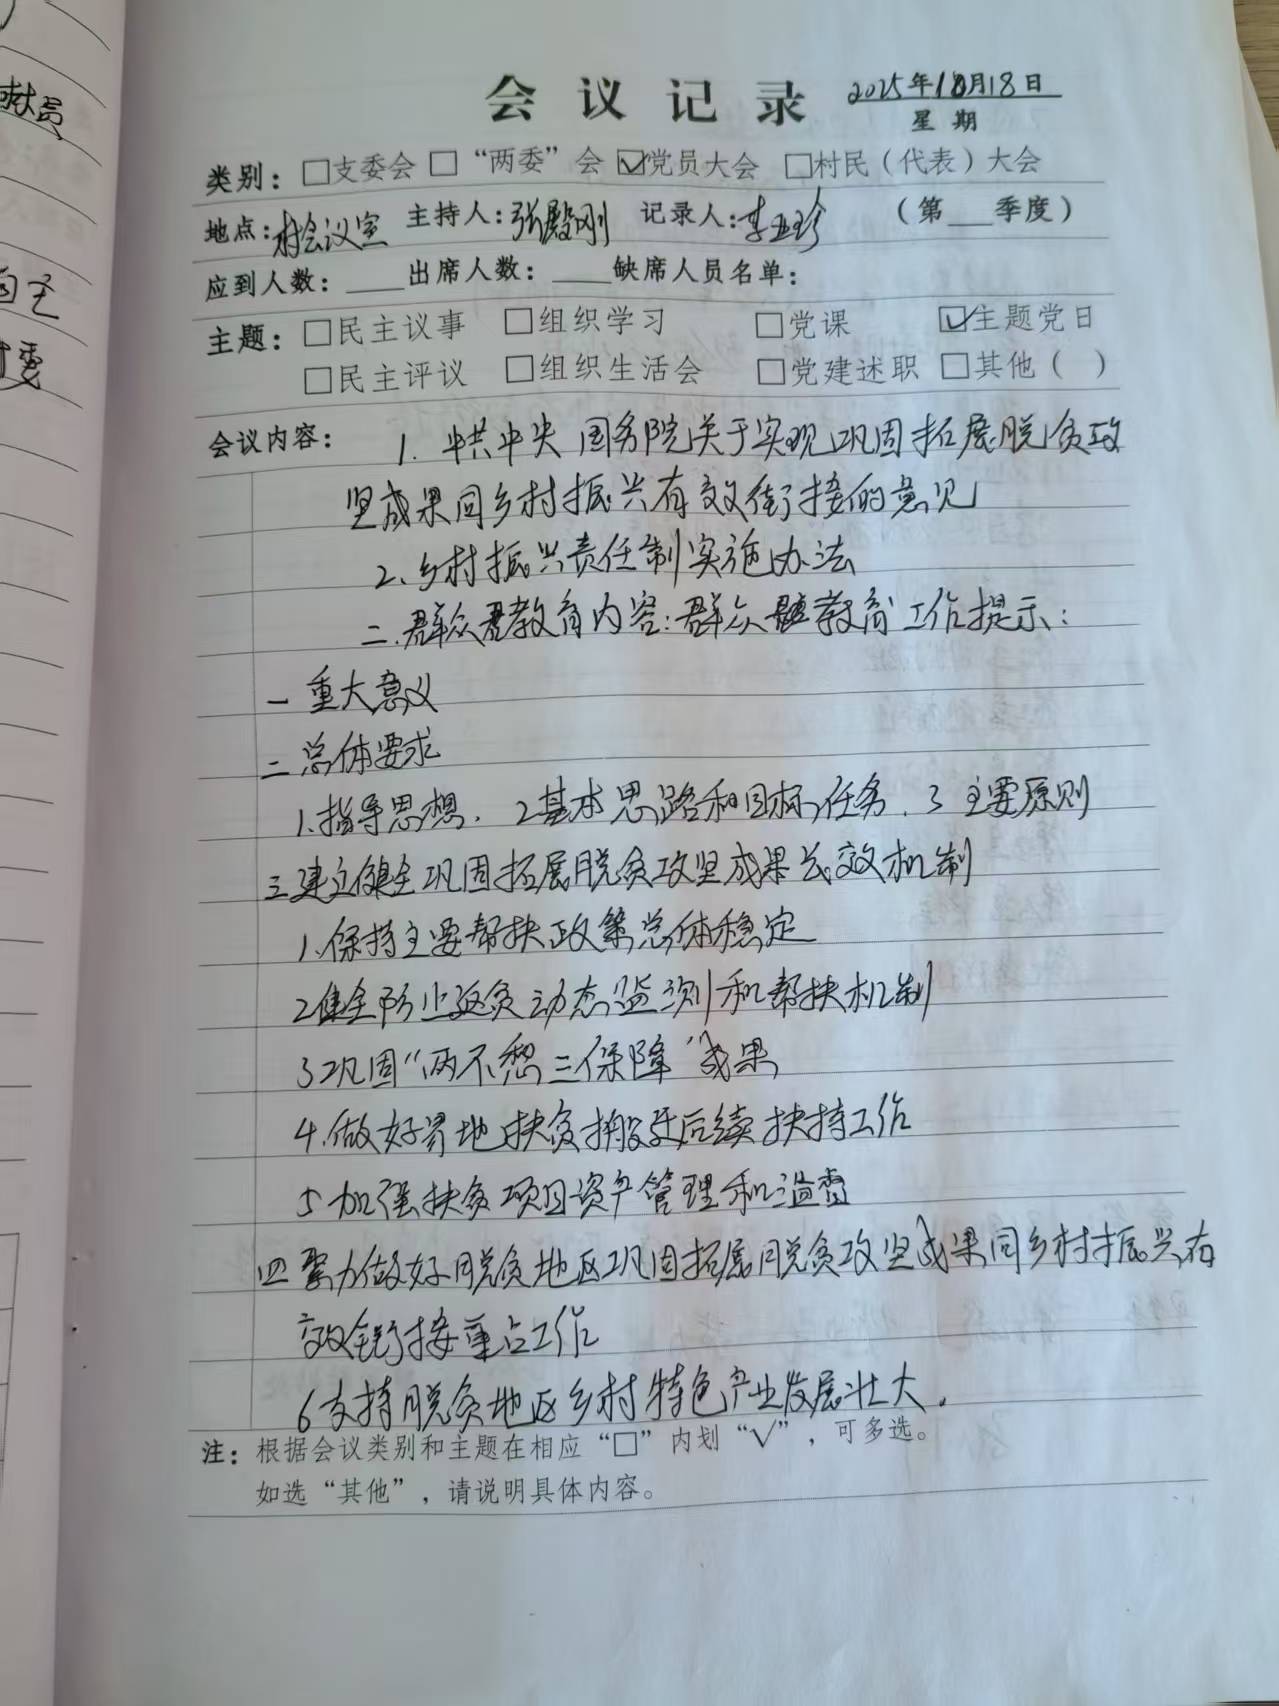 献员
会议记录 2025年10月18日
星期
类别：□支委会 □“两委”会 ☑党员大会 □村民（代表）大会
地点：村会议室 主持人：张殿刚 记录人：李亚珍 （第___季度）
应到人数：____出席人数：____缺席人员名单：
主题：□民主议事 □组织学习 □党课 ☑主题党日
□民主评议 □组织生活会 □党建述职 □其他（ ）
会议内容： 1. 中共中央 国务院关于实现巩固拓展脱贫攻
坚成果同乡村振兴有效衔接的意见
2、乡村振兴责任制实施办法
二.群众教育内容：群众教育工作提示：
一 重大意义
二 总体要求
1.指导思想. 2基本思路和目标任务. 3 主要原则
三建立健全巩固拓展脱贫攻坚成果长效机制
1.保持主要帮扶政策总体稳定
2健全防止返贫动态监测和帮扶机制
3巩固“两不愁三保障”成果
4.做好易地扶贫搬迁后续扶持工作
5加强扶贫项目资产管理和监督
四聚力做好脱贫地区巩固拓展脱贫攻坚成果同乡村振兴有
效衔接重点工作
6支持脱贫地区乡村特色产业发展壮大.
注：根据会议类别和主题在相应“□”内划“√”，可多选。
如选“其他”，请说明具体内容。